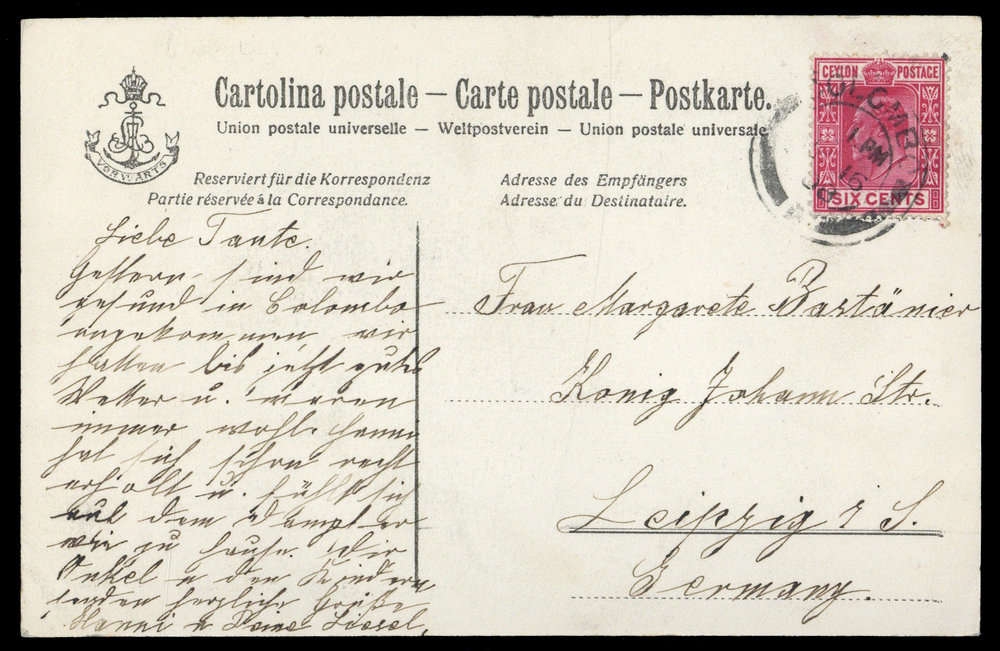 Cartolina postale — Carte postale — Postkarte.
Union postale universelle — Weltpostverein — Union postale universale
Reserviert für die Korrespondenz
Partie réservée à la Correspondance.
Adresse des Empfängers
Adresse du Destinataire.
VORWÄRTS
CEYLON POSTAGE
SIX CENTS
COLOMBO
1 PM
Liebe Tante.
Gestern sind wir
gesund in Colombo
angekommen wir
hatten bis jetzt gutes
Wetter u. waren
immer wohl. Hanni
hat sich schon recht
erholt u. fühlt sich
auf dem Dampfer
wie zu Hause. Dir
Onkel u den Kindern
senden herzliche Grüße
Hanni u Liesel,
Frau Margarete Bastänier
König Johann Str.
Leipzig i S.
Germany.